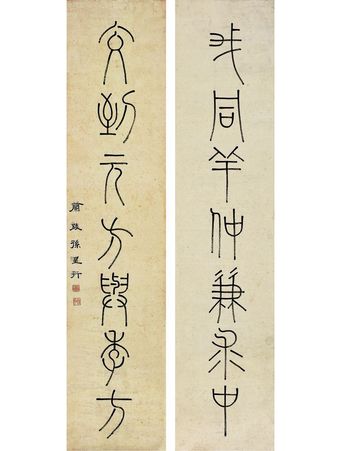 同羊仲兼求中
交到元方與季方
蘭陵孫星衍